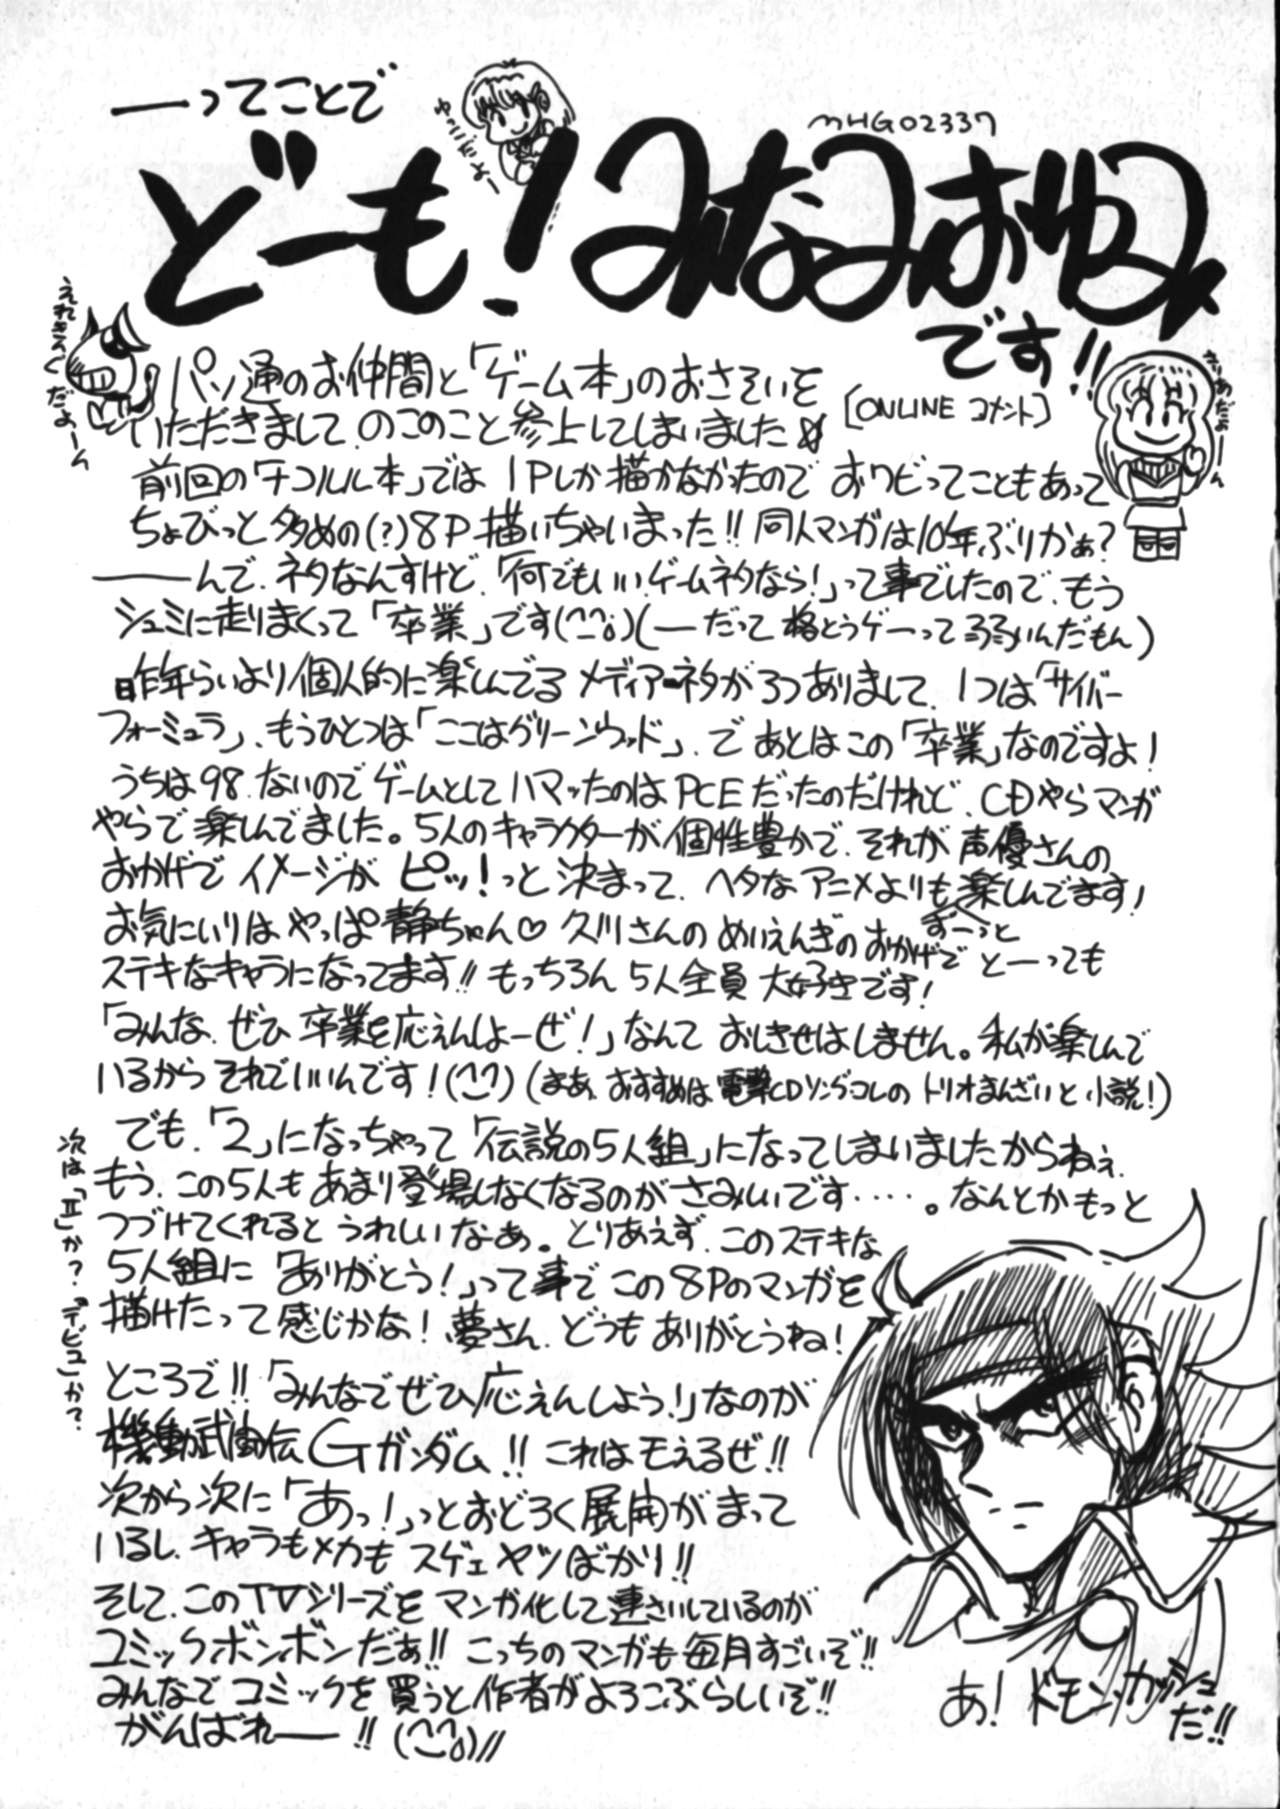 ―ってことで
ゆっこだよー
MHG02337
どーも!みなみおゆみ
です!!
えれきんぐだよーん
きりあだよーん
パソ通のお仲間と「ゲーム本」のおさそいを
〔ONLINE コメント〕
いただきまして、のこのこと参上してしまいました
前回の「ナコルル本」では1Pしか描かなかったので おワビってこともあって
ちょびっと多めの(?)8P描いちゃいまった!!同人マンガは10年ぶりかぁ?
―――んで、ネタなんすけど、「何でもいいゲームネタなら!」って事でしたので、もう
シュミに走りまくって「卒業」です(^^;)(―だって格とうゲーって弱いんだもん)
昨年らいより個人的に楽しんでるメディアーネタが3つありまして、1つは「サイバー
フォーミュラ」、もうひとつは「ここはグリーンウッド」、で あとはこの「卒業」なのですよ!
うちは98、ないのでゲームとしてハマったのはPCEだったのだけれど、CDやらマンガ
やらで楽しんでました。5人のキャラクターが個性豊かで、それが声優さんの
おかげでイメージがピッ!っと決まって、ヘタなアニメよりもずーっと楽しんでます!
お気にいりはやっぱ静ちゃん♡久川さんのめいえんぎのおかげでとーっても
ステキなキャラになってます!!もっちろん5人全員大好きです!
「みんな、ぜひ卒業を応えんしよーぜ!」なんておしきせはしません。私が楽しんで
いるからそれでいいんです!(^^)(まあ、おすすめは電撃CDソングコレのトリオまんざいと小説!)
でも、「2」になっちゃって「伝説の5人組」になってしまいましたからねぇ、
もう、この5人もあまり登場しなくなるのがさみしいです・・・・。なんとかもっと
つづけてくれるとうれしいなあ。とりあえず、このステキな
5人組に「ありがとう!」って事でこの8Pのマンガを
描けたって感じかな!夢さん、どうもありがとうね!
次は「Ⅱ」か?「デビュ」か?
ところで!!「みんなでぜひ応えんしよう!」なのが
機動武闘伝Gガンダム!!これはモえるぜ!!
次から次に「あっ!」っとおどろく展開がまって
いるし、キャラもメカもスゲェヤツばかり!!
そして、このTVシリーズをマンガ化して連さいしているのが
コミックボンボンだぁ!!こっちのマンガも毎月すごいぞ!!
みんなでコミックを買うと作者がよろこぶらしいぞ!!
がんばれ―――!!(^^;)//
あ!ドモン・カッシュ
だ!!